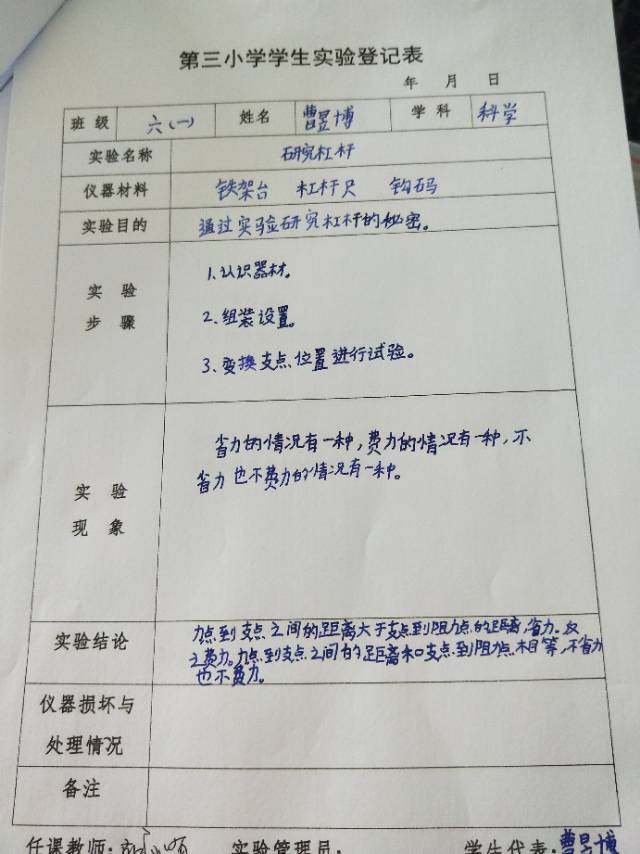 第三小学学生实验登记表
年 月 日
班 级 六(一) 姓名 曹昱博 学 科 科学
实验名称 研究杠杆
仪器材料 铁架台 杠杆尺 钩码
实验目的 通过实验研究杠杆的秘密。
实 验
步 骤
1.认识器材。
2.组装设置。
3、变换支点位置进行试验。
实 验
现 象
省力的情况有一种,费力的情况有一种,不
省力也不费力的情况有一种。
实验结论
力点到支点之间的距离大于支点到阻力点的距离,省力。反
之费力。力点到支点之间的距离和支点到阻力点相等,不省力
也不费力。
仪器损坏与
处理情况
备注
任课教师: 实验管理员: 学生代表:曹昱博